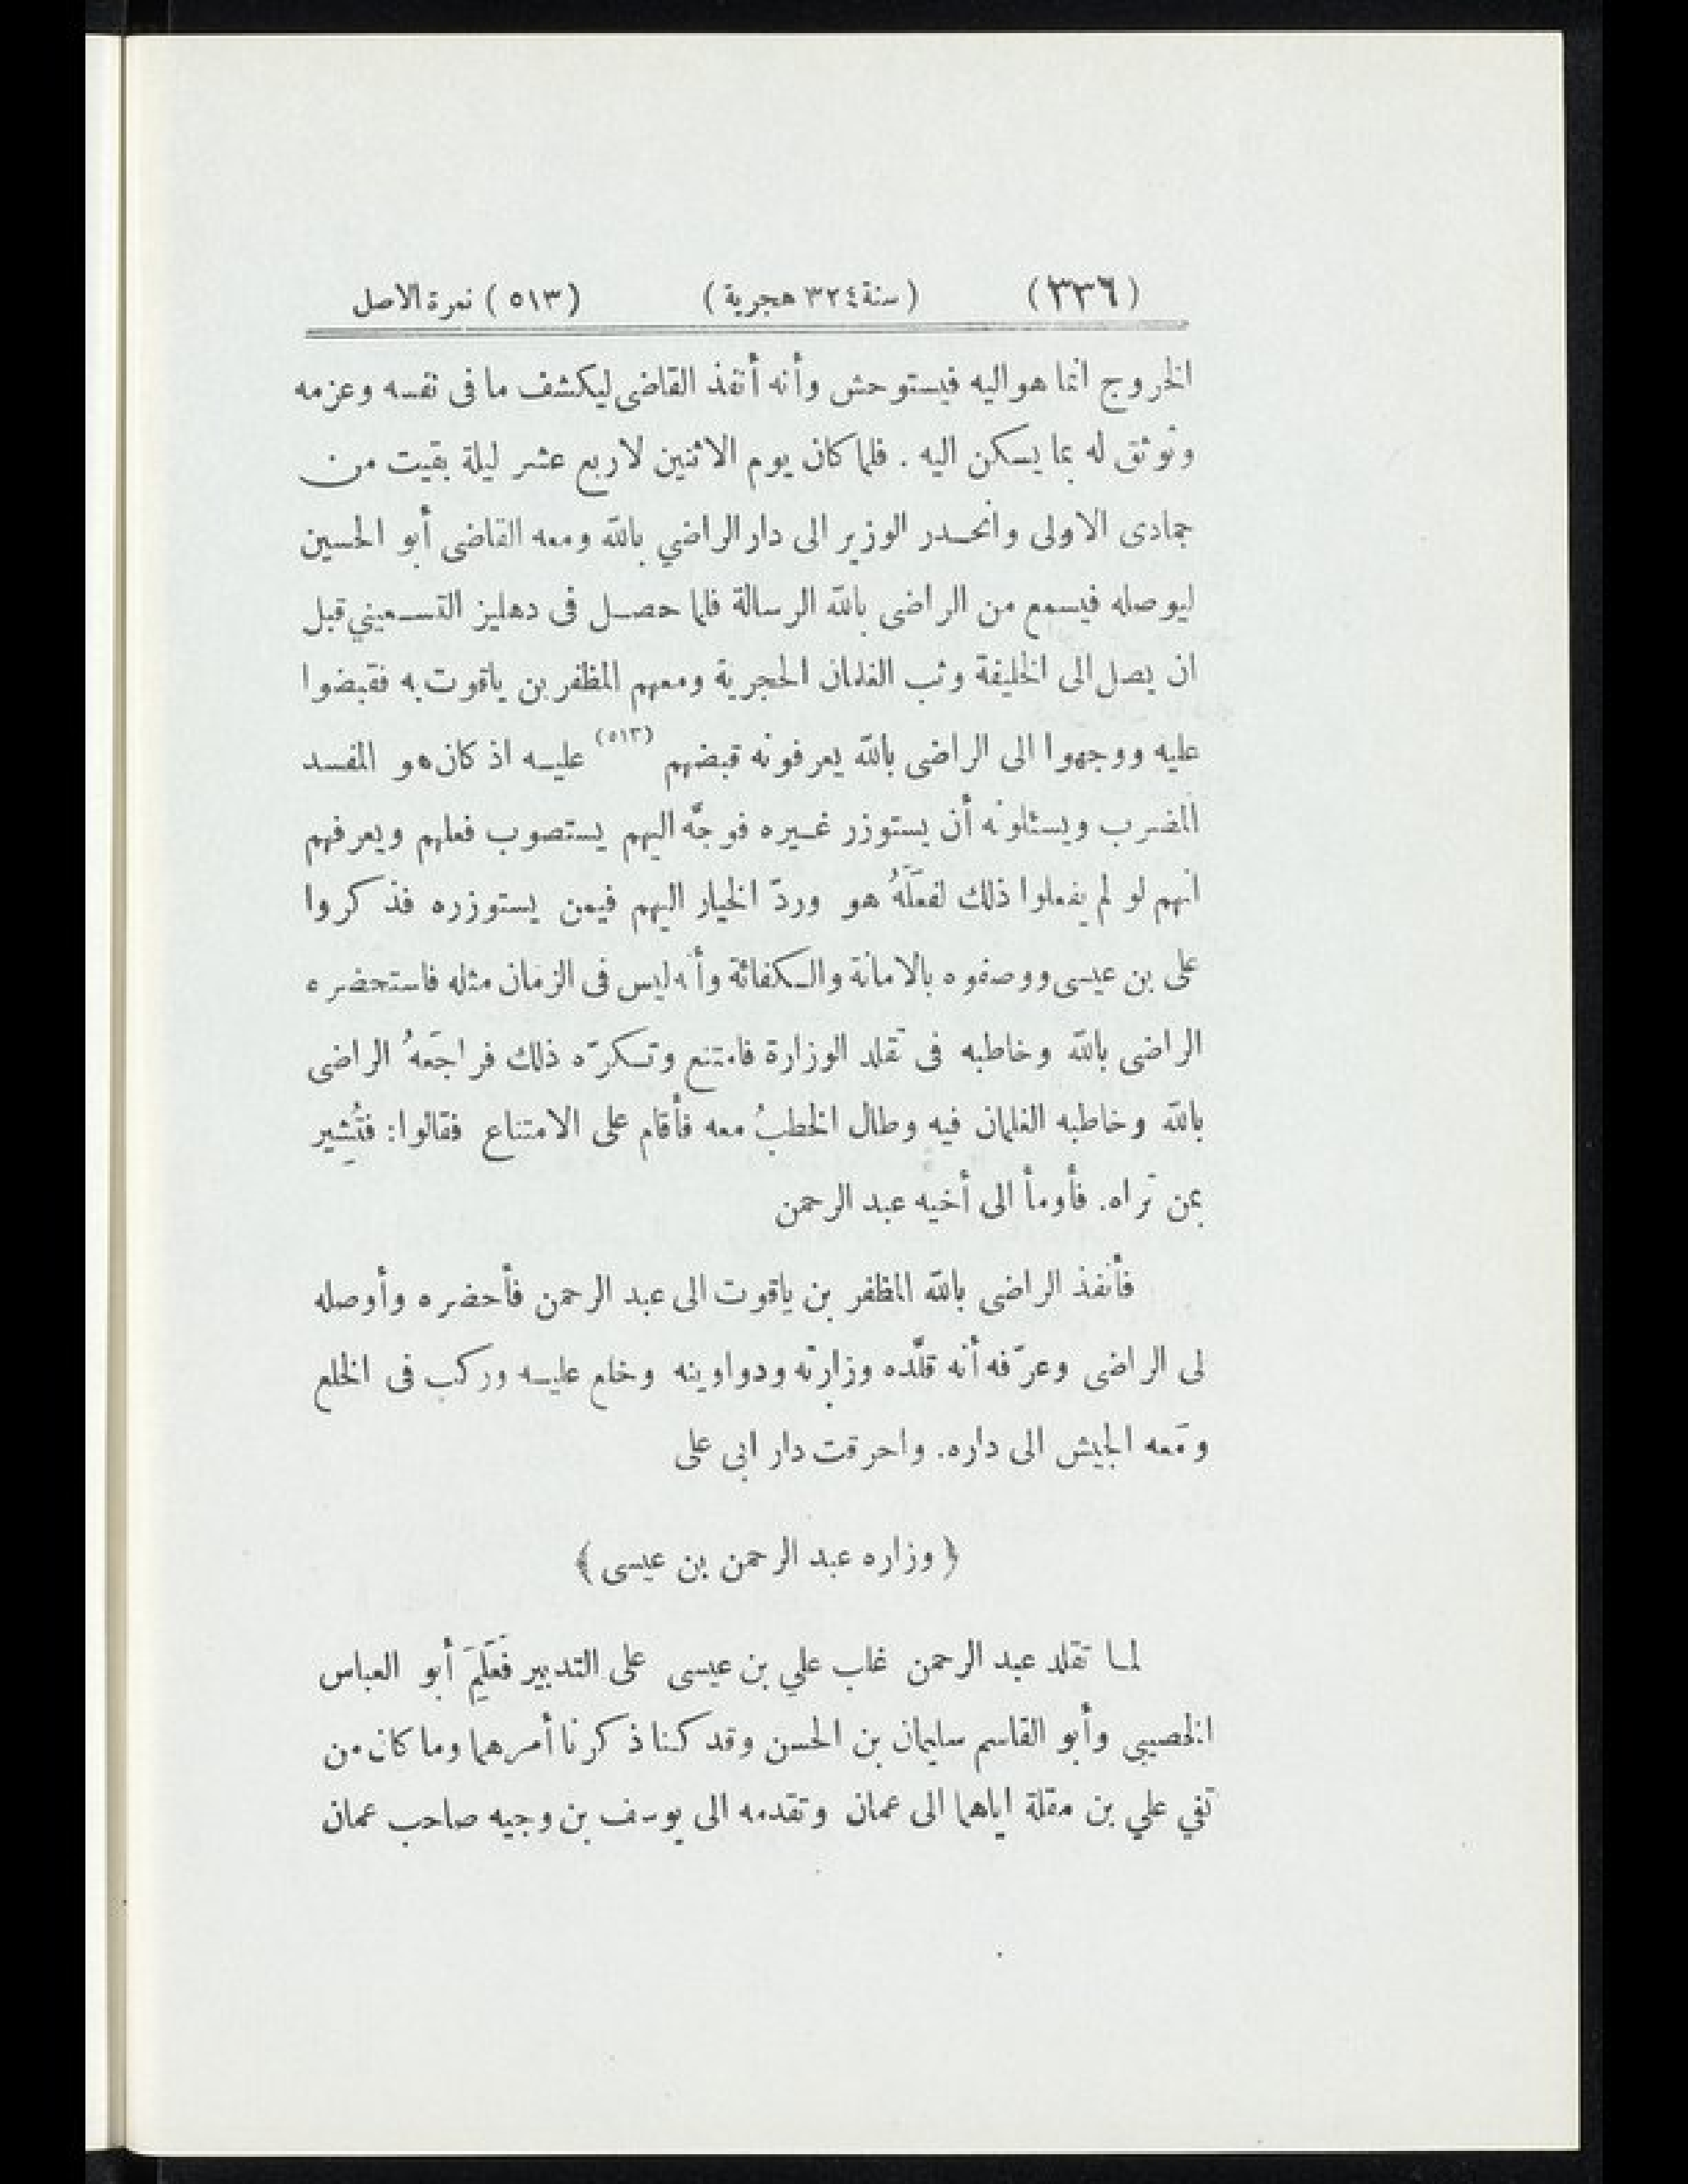 (٣٣٦) (سنة ٣٢٤ هجرية) (٥١٣) نمرة الاصل
الخروج انما هو اليه فيستوحش وأنه أنفذ القاضى ليكشف ما فى نفسه وعزمه
وتوثق له بما يسكن اليه . فلما كان يوم الاثنين لاربع عشر ليلة بقيت من
جمادى الاولى وانحدر الوزير الى دار الراضي بالله ومعه القاضى أبو الحسين
ليوصله فيسمع من الراضى بالله الرسالة فلما حصل فى دهليز التسعيني قبل
ان يصل الى الخليفة وثب الغلمان الحجرية ومعهم المظفر بن ياقوت به فقبضوا
عليه ووجهوا الى الراضى بالله يعرفونه قبضهم (٥١٣) عليه اذ كان هو المفسد
المضرب ويسئلونه أن يستوزر غيره فوجّه اليهم يستصوب فعلهم ويعرفهم
انهم لو لم يفعلوا ذلك لفعَلَهُ هو وردّ الخيار اليهم فيمن يستوزره فذكروا
على بن عيسى ووصفوه بالامانة والكفائة وأنه ليس فى الزمان مثله فاستحضره
الراضى بالله وخاطبه فى تقلد الوزارة فامتنع وتكرّه ذلك فراجَعهُ الراضى
بالله وخاطبه الغلمان فيه وطال الخطبُ معه فأقام على الامتناع فقالوا: فتُشِير
بمن تراه. فأومأ الى أخيه عبد الرحمن
فأنفذ الراضى بالله المظفر بن ياقوت الى عبد الرحمن فأحضره وأوصله
لى الراضى وعرّفه أنه قلّده وزارته ودواوينه وخلع عليه وركب فى الخلع
ومَعه الجيش الى داره. واحرقت دار ابى على
﴿ وزاره عبد الرحمن بن عيسى ﴾
لما تقلد عبد الرحمن غاب علي بن عيسى على التدبير فَعَلِمَ أبو العباس
الخصيبى وأبو القاسم سليمان بن الحسن وقد كنا ذكرنا أمرهما وما كان من
نفي علي بن مقلة اياهما الى عمان وتقدمه الى يوسف بن وجيه صاحب عمان